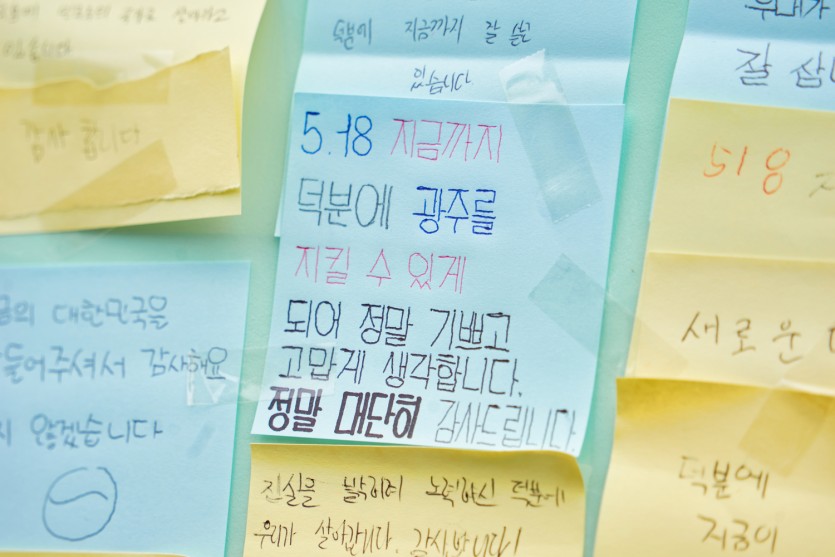 감사 합니다
덕분에 지금까지 잘 살고
있습니다.
5.18 지금까지
덕분에 광주를
지킬 수 있게
되어 정말 기쁘고
고맙게 생각합니다.
정말 대단히 감사드립니다.
진실을 밝히려 노력하신 덕분에
우리가 살아갑니다. 감사합니다!
대한민국을
들어주셔서 감사해요
않겠습니다
잘 삽니
518
새로운
덕분에
지금이